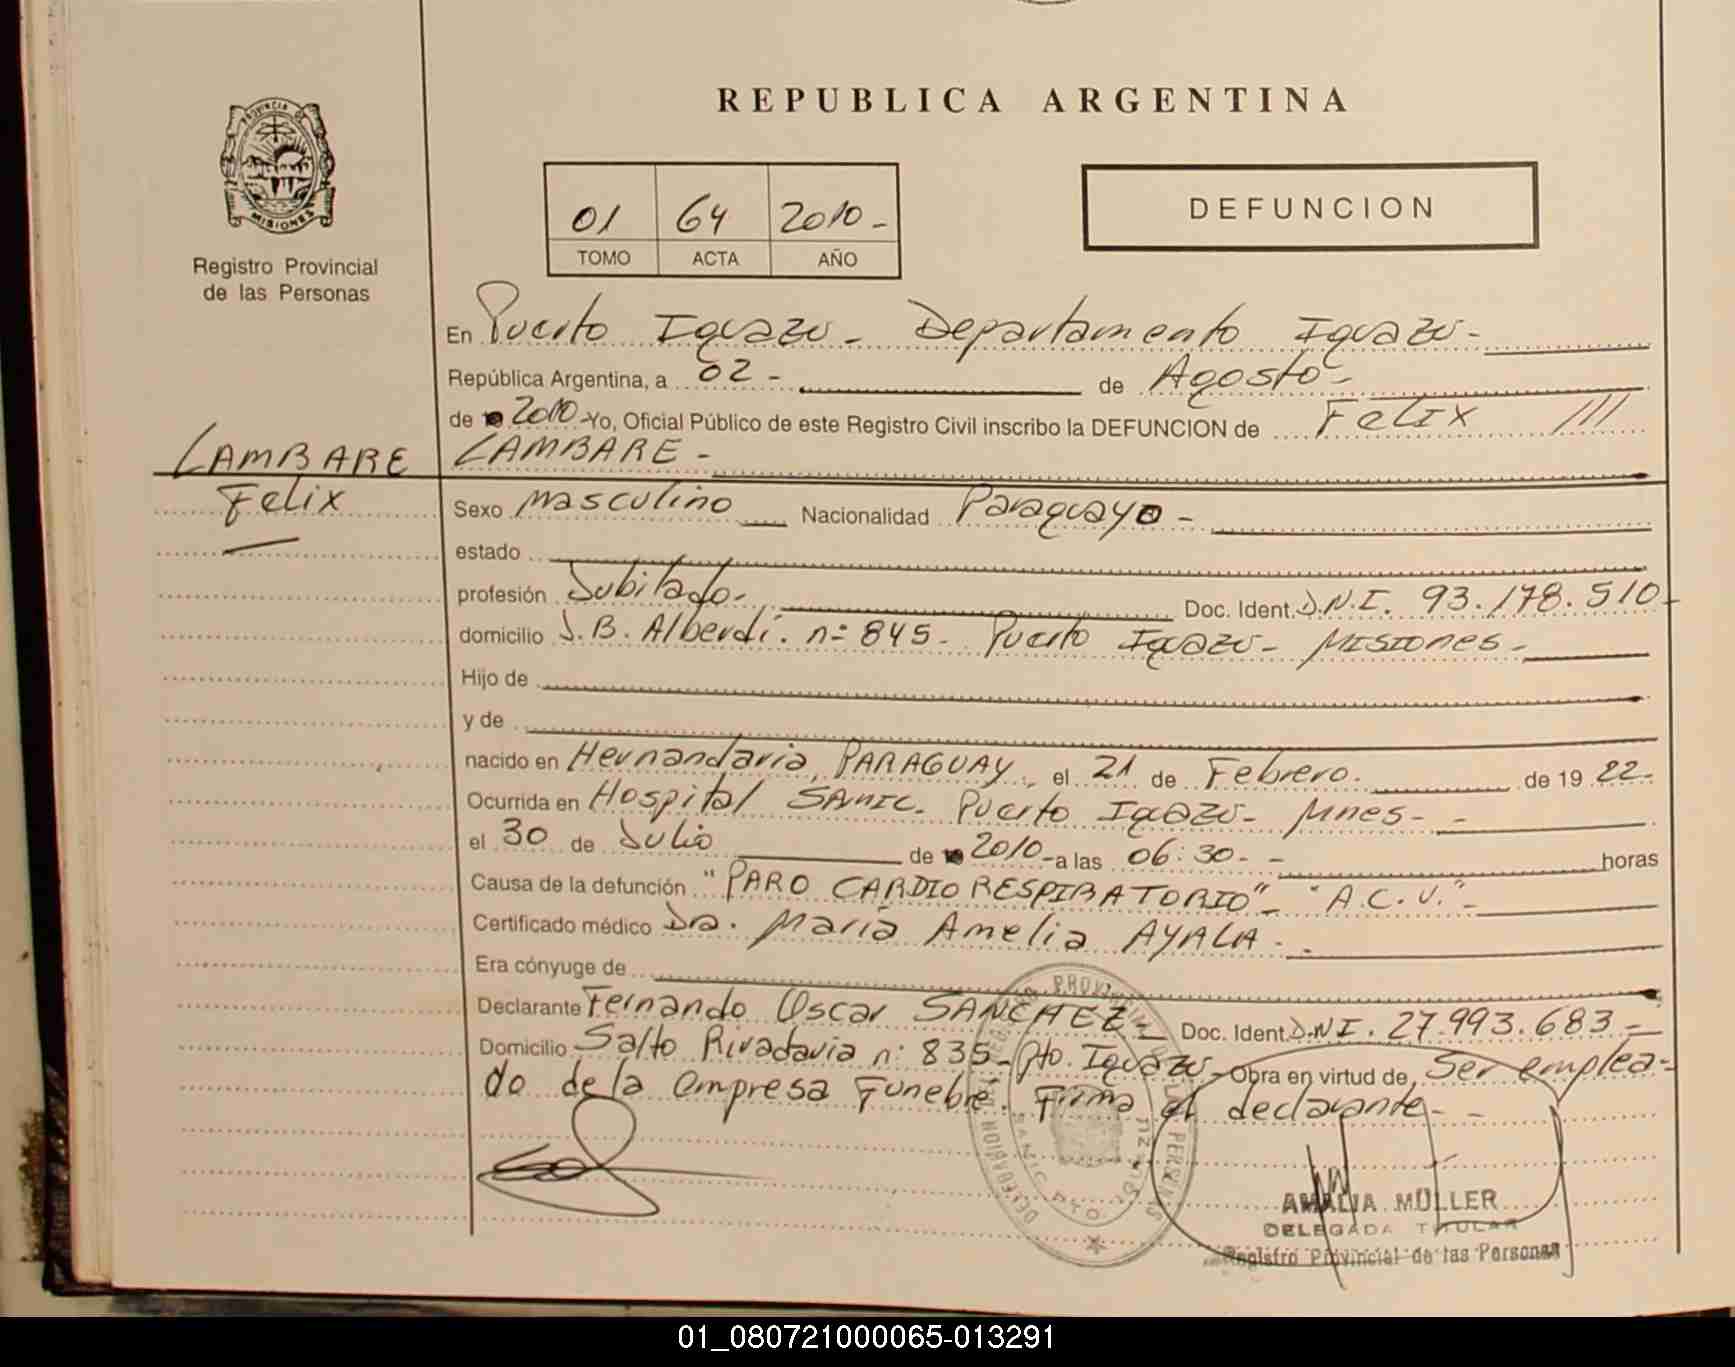 PROVINCIA DE
MISIONES
Registro Provincial
de las Personas
REPUBLICA ARGENTINA
01 64 2010-
TOMO ACTA AÑO
DEFUNCION
En Puerto Iguazu - Departamento Iguazu -
República Argentina, a 02 - de Agosto -
de 2010 - Yo, Oficial Público de este Registro Civil inscribo la DEFUNCION de Felix ///
LAMBARE -
LAMBARE
Felix
Sexo Masculino Nacionalidad Paraguayo -
estado
profesión Jubilado - Doc. Ident. D.N.I. 93.178.510 -
domicilio J.B. Alberdi. nº 845 - Puerto Iguazu - Misiones -
Hijo de
y de
nacido en Hernandaria, PARAGUAY, el 21 de Febrero. de 19 22 -
Ocurrida en Hospital SAMIC. Puerto Iguazu - Mnes - -
el 30 de Julio de 2010 - a las 06:30 - - horas
Causa de la defunción "PARO CARDIORESPIRATORIO" - "A.C.V." -
Certificado médico Dra. María Amelia AYALA - -
Era cónyuge de
Declarante Fernando Oscar SANCHEZ - Doc. Ident. D.N.I. 27.993.683 -
Domicilio Salto Rivadavia nº 835 - Pto. Iguazu - Obra en virtud de, Ser emplea-
do de la empresa Funebre. Firma el declarante - -
AMALIA MÜLLER
DELEGADA TITULAR
Registro Provincial de las Personas
01_080721000065-013291